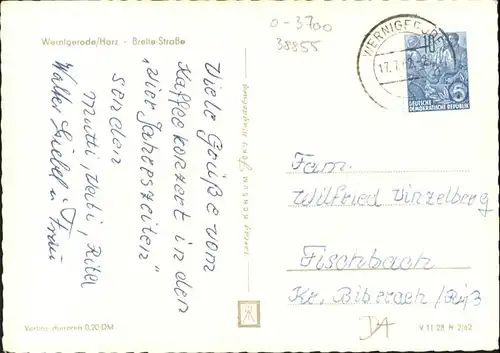 Wernigerode/Harz - Breite-Straße
0-3700
38855
WERNIGERODE
10
DEUTSCHE
DEMOKRATISCHE REPUBLIK
Viele Grüße vom
Kaffeekonzert in den
„Vier Jahreszeiten"
senden
Mutti, Vati,
Walter u. Frau
KONSUM
Fam.
Wilfried Vinzelberg
Fischbach
Kr. Biberach/Riß
Verbraucherpreis 0,20 DM
V 11 28 H 2/62